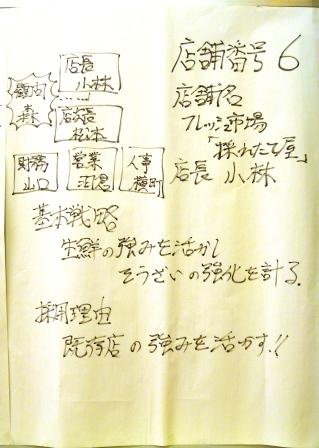 店長
小林
顧問
森
店次長
松本
財務
山口
営業
人事
横町
店舗番号 6
店舗名
フレッシュ市場
「採れたて豆」
店長 小林
基本戦略
生鮮の強みを活かし
そうざいの強化を計る.
採用理由
既存店の強みを活かす!!